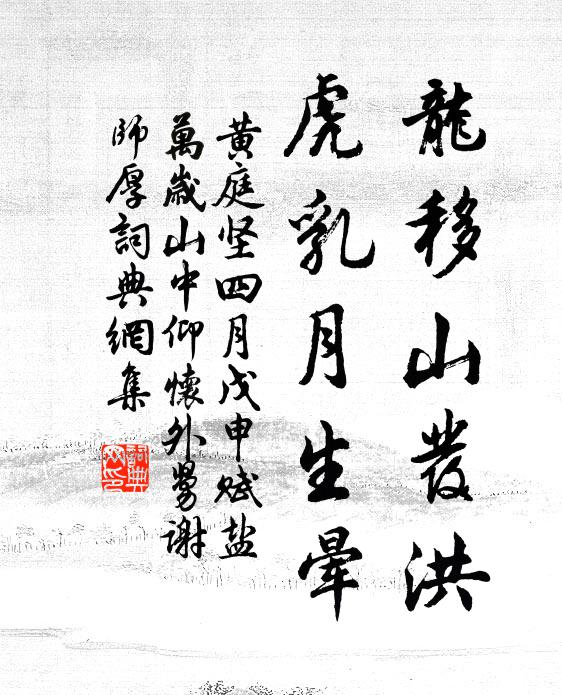 龍移山發洪
虎乳月生暈
黄庭坚四月戊申赋盐
萬歲山中仰懷外舅谢
師厚詞典網集
詞典网印